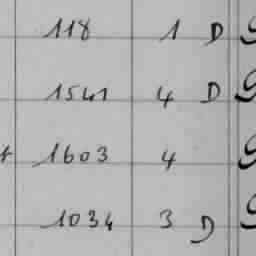 118 1 D
1541 4 D
1603 4
1034 3 D